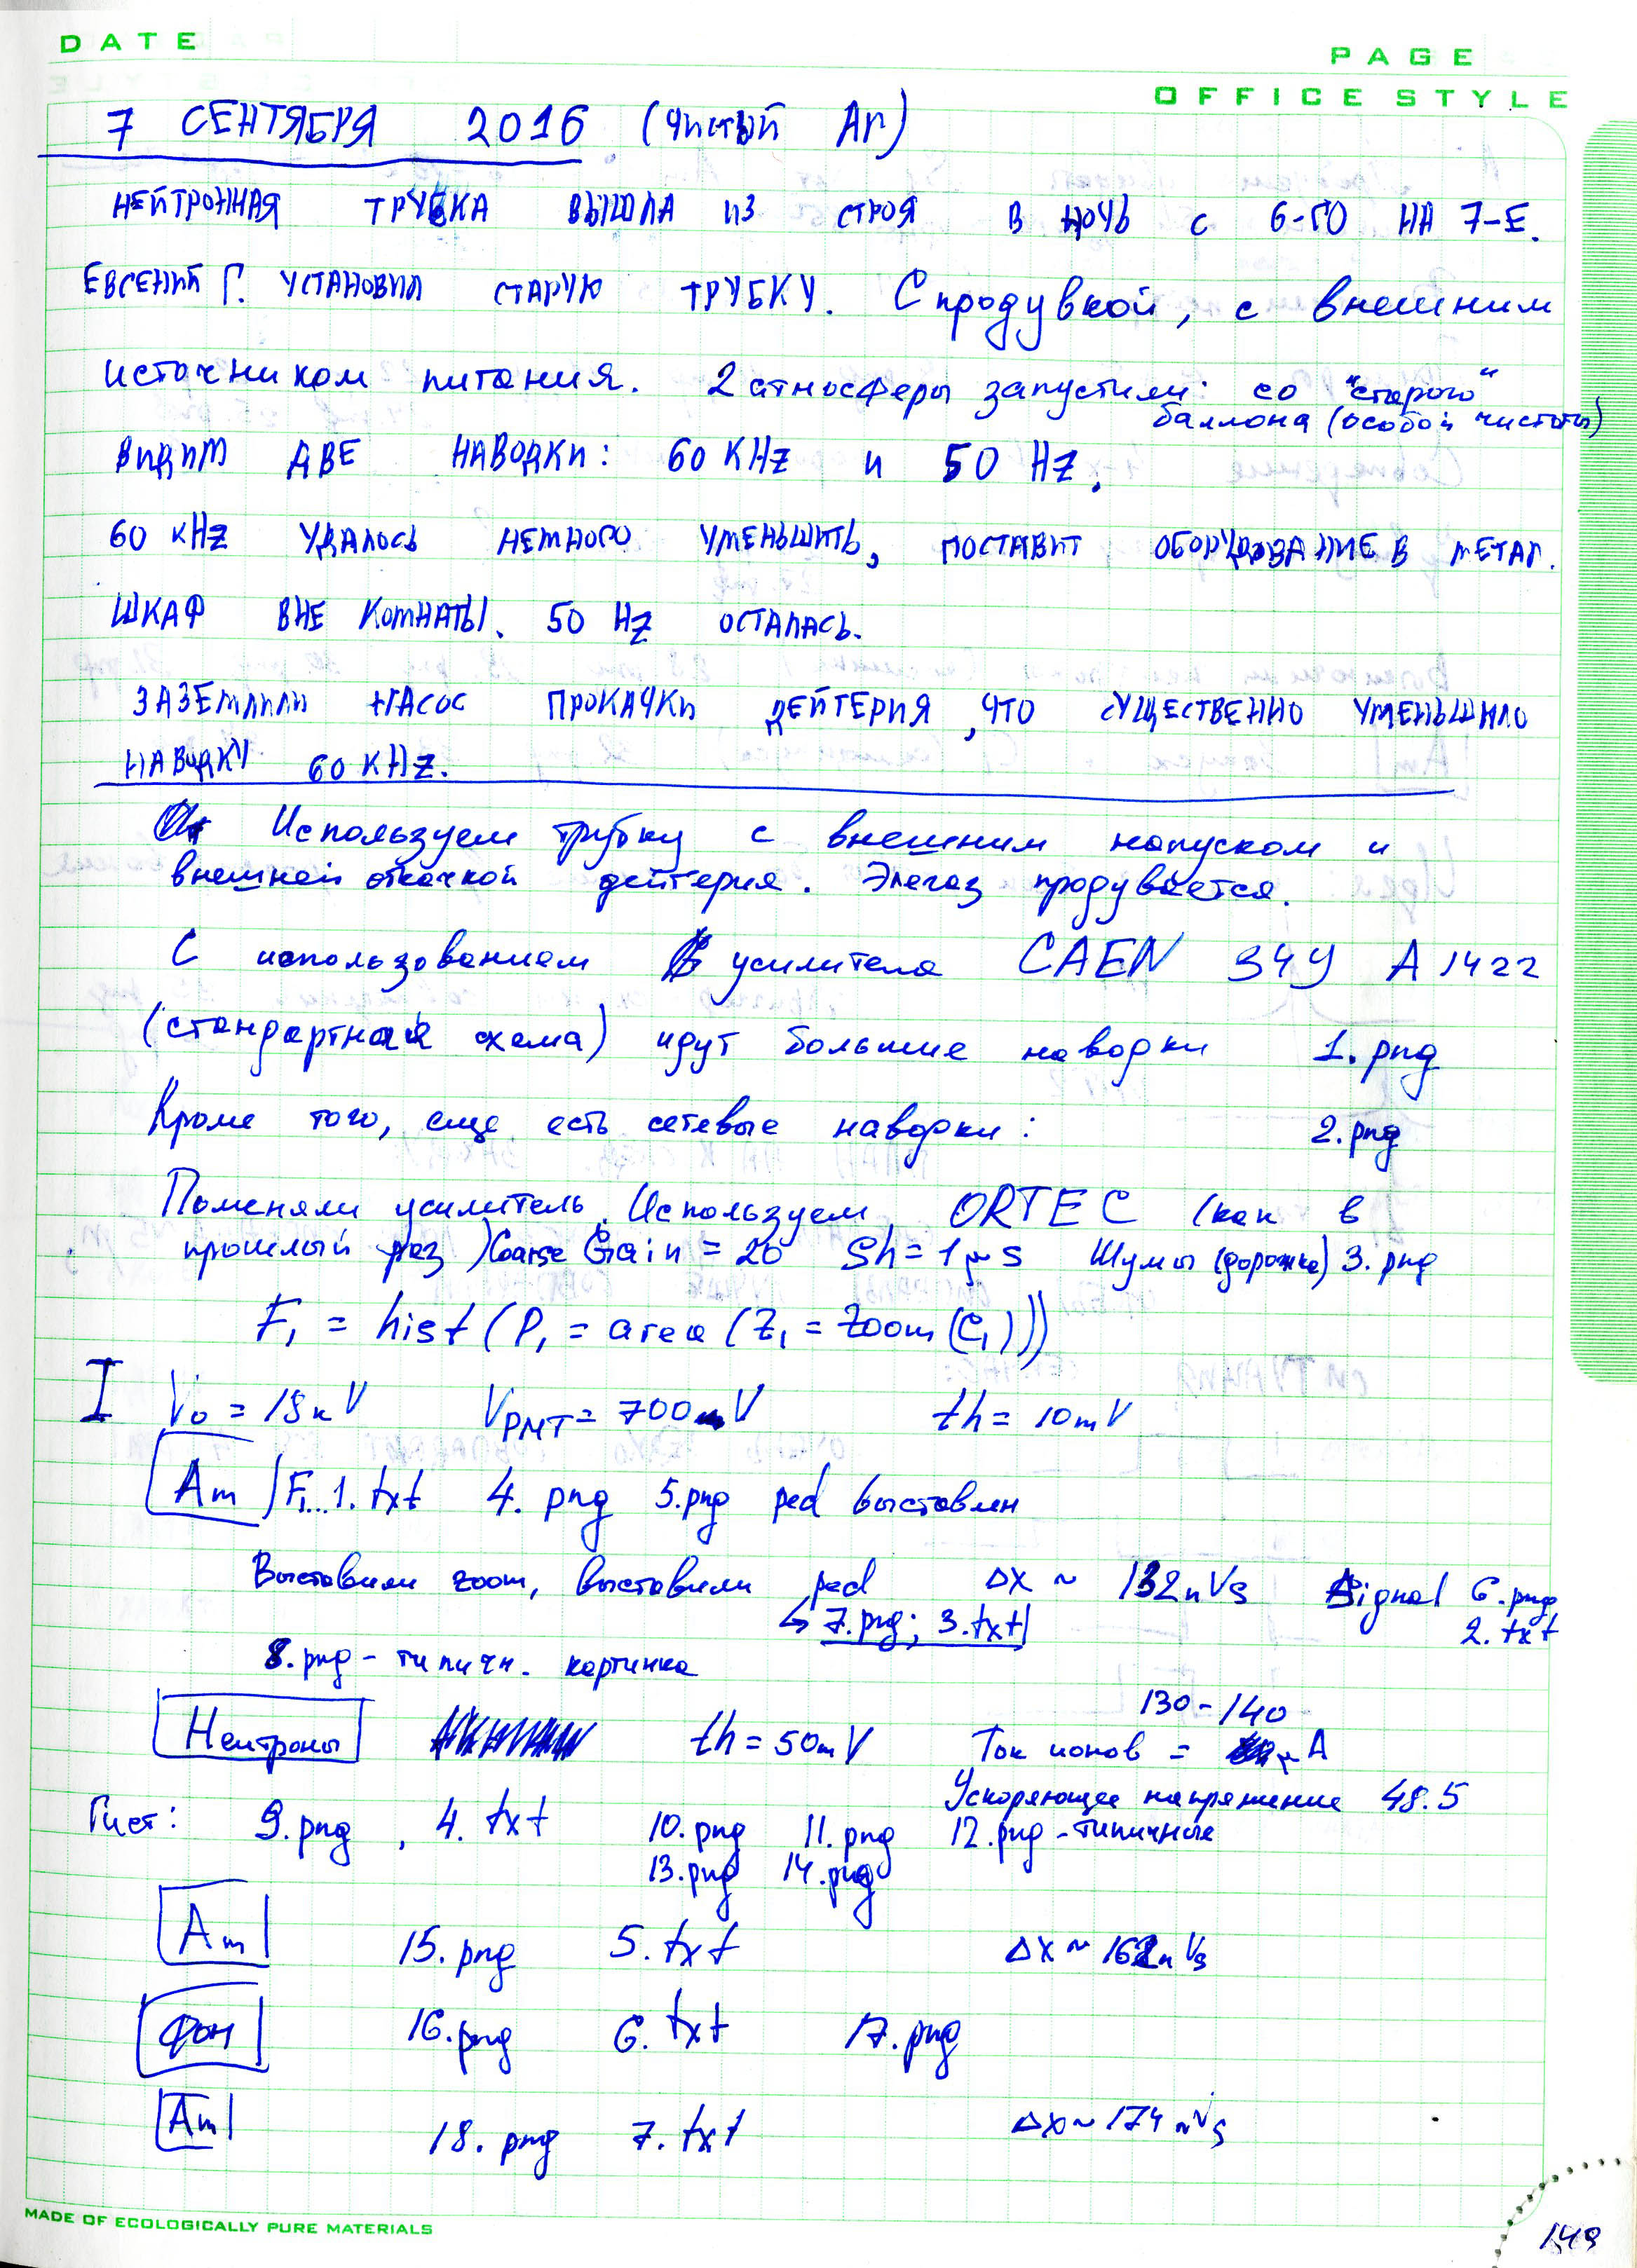 DATE
PAGE
OFFICE STYLE
7 СЕНТЯБРЯ 2016 (чистый Ar)
НЕЙТРОННАЯ ТРУБКА ВЫШЛА ИЗ СТРОЯ В НОЧЬ С 6-ГО НА 7-Е.
ЕВГЕНИЙ Г. УСТАНОВИЛ СТАРУЮ ТРУБКУ. С продувкой, с внешним
источником питания. 2 атмосферы запустили: со "старого"
баллона (особой чистоты)
ВИДИМ ДВЕ НАВОДКИ: 60 KHz и 50 Hz.
60 KHz УДАЛОСЬ НЕМНОГО УМЕНЬШИТЬ, ПОСТАВИТ ОБОРУДОВАНИЕ В МЕТАЛ.
ШКАФ ВНЕ КОМНАТЫ. 50 Hz ОСТАЛАСЬ.
ЗАЗЕМЛИЛИ НАСОС ПРОКАЧКИ ДЕЙТЕРИЯ, ЧТО СУЩЕСТВЕННО УМЕНЬШИЛО
НАВОДКУ 60 KHz.
Используем трубку с внешним напуском и
внешней откачкой дейтерия. Элегаз продувается.
С использованием усилителя CAEN ЗЧУ A1422
(стандартная схема) идут большие наводки 1.png
Кроме того, еще есть сетевые наводки: 2.png
Поменяли усилитель. Используем ORTEC (как в
прошлый раз) Coarse Gain = 20 Sh = 1μs Шумы (дорожка) 3.png
F₁ = hist (P₁ = area (Z₁ = zoom (C₁)))
I V₀ = 18кV V_PMT = 700 V th = 10mV
Am F₁...1.txt 4.png 5.png ped выставлен
Выставили zoom, выставили ped Δx ~ 132nVs Signal 6.png
↳ 7.png; 3.txt 2.txt
8.png - типичн. картинка
130-140
Нейтроны th = 50mV Ток ионов = μA
Ускоряющее напряжение 48.5
Гист: 9.png, 4.txt 10.png 11.png 12.png - типичные
13.png 14.png
Am 15.png 5.txt Δx ~ 162nVs
Фон 16.png 6.txt 17.png
Am 18.png 7.txt Δx ~ 174nVs
MADE OF ECOLOGICALLY PURE MATERIALS
149